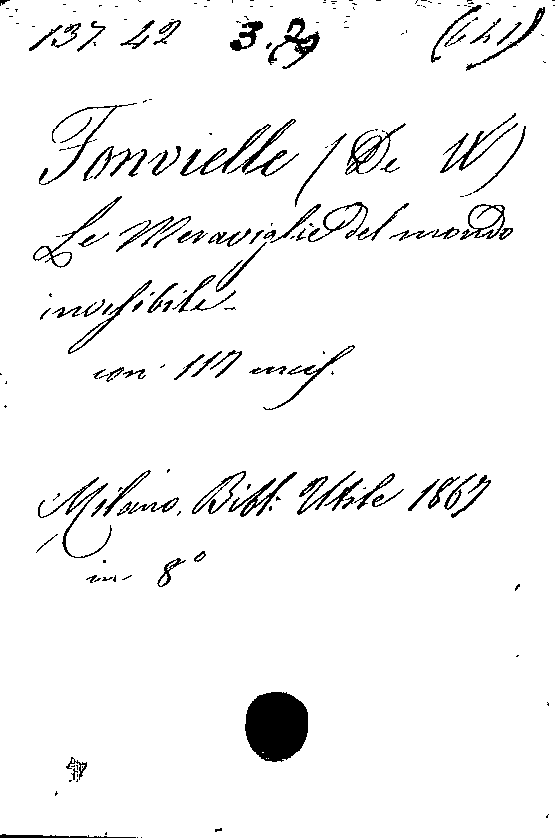 137. 42 3.79 (641)
Fonvielle (De W)
Le Meraviglie del mondo
invisibile
con 117 incis.
Milano, Bibl: Utile 1867
in 8°